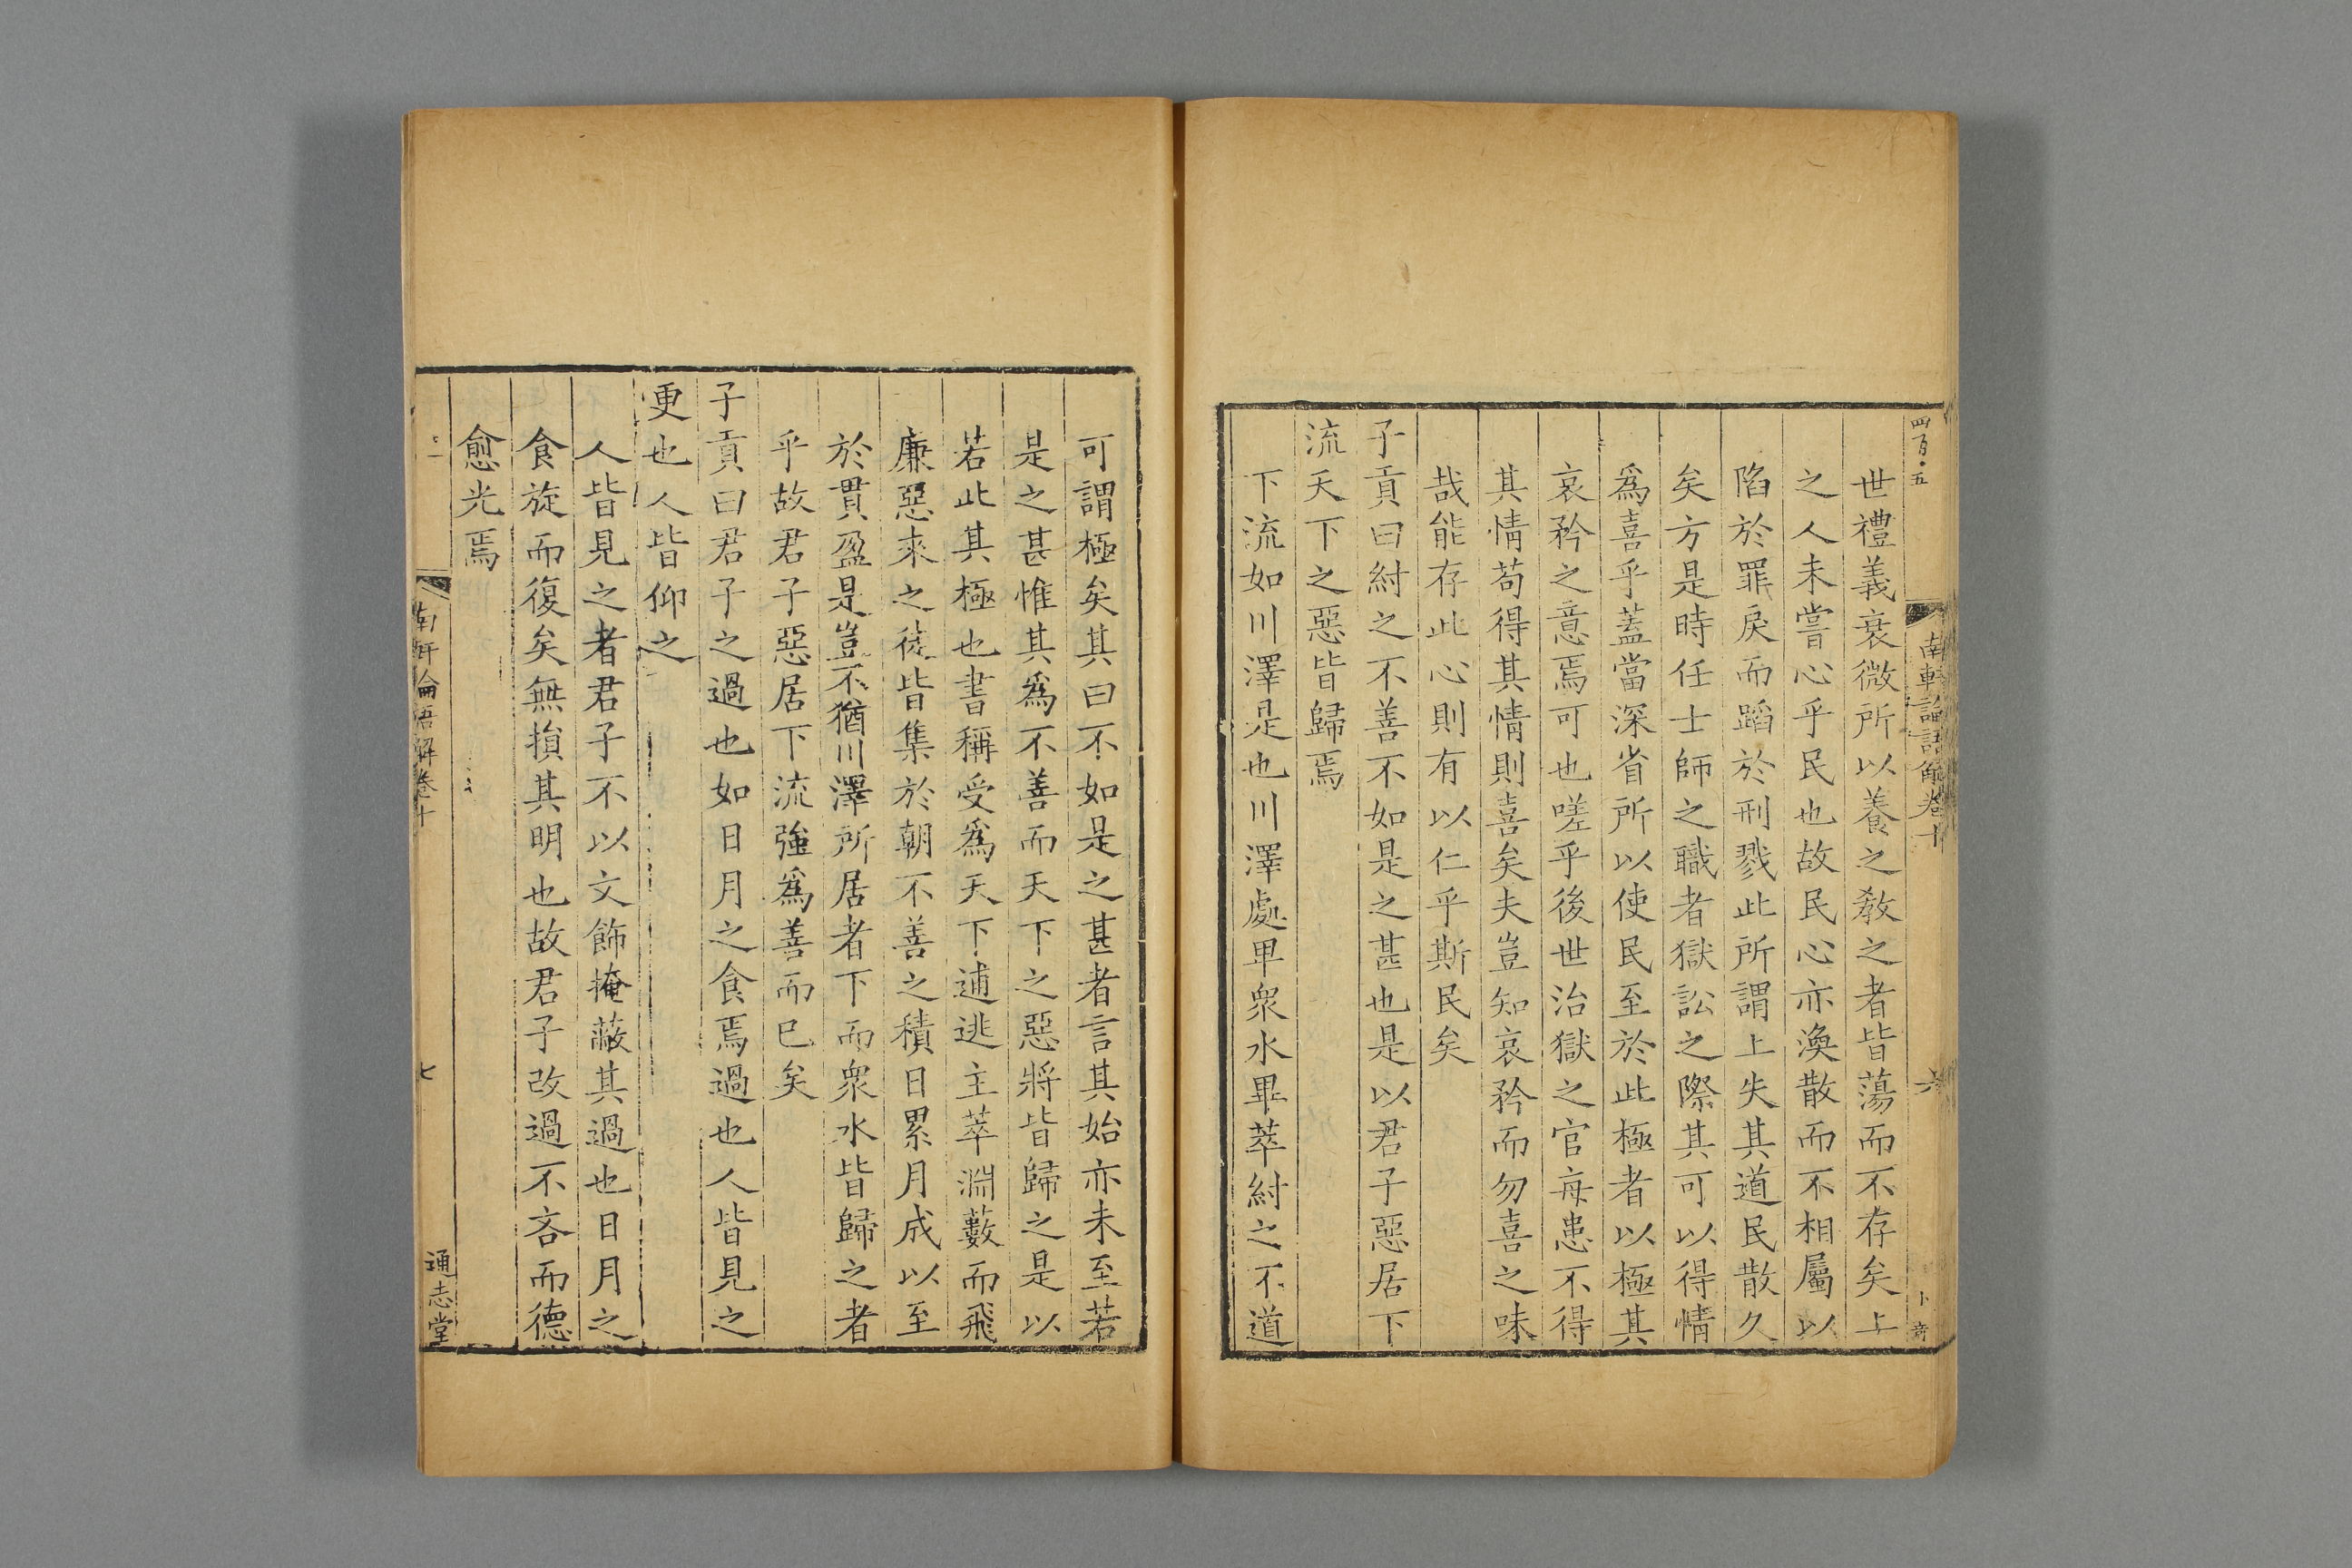 四百五
南軒論語解卷十
六
世禮義衰微所以養之教之者皆蕩而不存矣上
之人未嘗心乎民也故民心亦渙散而不相屬以
陷於罪戾而蹈於刑戮此所謂上失其道民散久
矣方是時任士師之職者獄訟之際其可以得情
爲喜乎蓋當深省所以使民至於此極者以極其
哀矜之意焉可也嗟乎後世治獄之官每患不得
其情苟得其情則喜矣夫豈知哀矜而勿喜之味
哉能存此心則有以仁乎斯民矣
子貢曰紂之不善不如是之甚也是以君子惡居下
流天下之惡皆歸焉
下流如川澤是也川澤處卑衆水畢萃紂之不道
可謂極矣其曰不如是之甚者言其始亦未至若
是之甚惟其爲不善而天下之惡將皆歸之是以
若此其極也書稱受爲天下逋逃主萃淵藪而飛
廉惡來之徒皆集於朝不善之積日累月成以至
於貫盈是豈不猶川澤所居者下而衆水皆歸之者
乎故君子惡居下流強爲善而已矣
子貢曰君子之過也如日月之食焉過也人皆見之
更也人皆仰之
人皆見之者君子不以文飾掩蔽其過也日月之
食旋而復矣無損其明也故君子改過不吝而德
愈光焉
南軒論語解卷十
七
通志堂